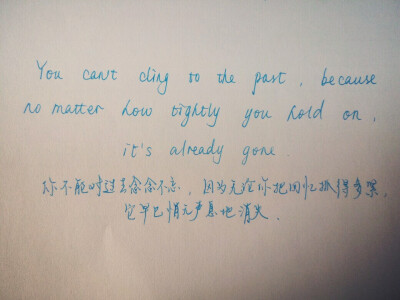 You can't cling to the past, because
no matter how tightly you hold on,
it's already gone
你不能对过去念念不忘，因为无论你把回忆抓得多紧，
它早已悄无声息地消失.